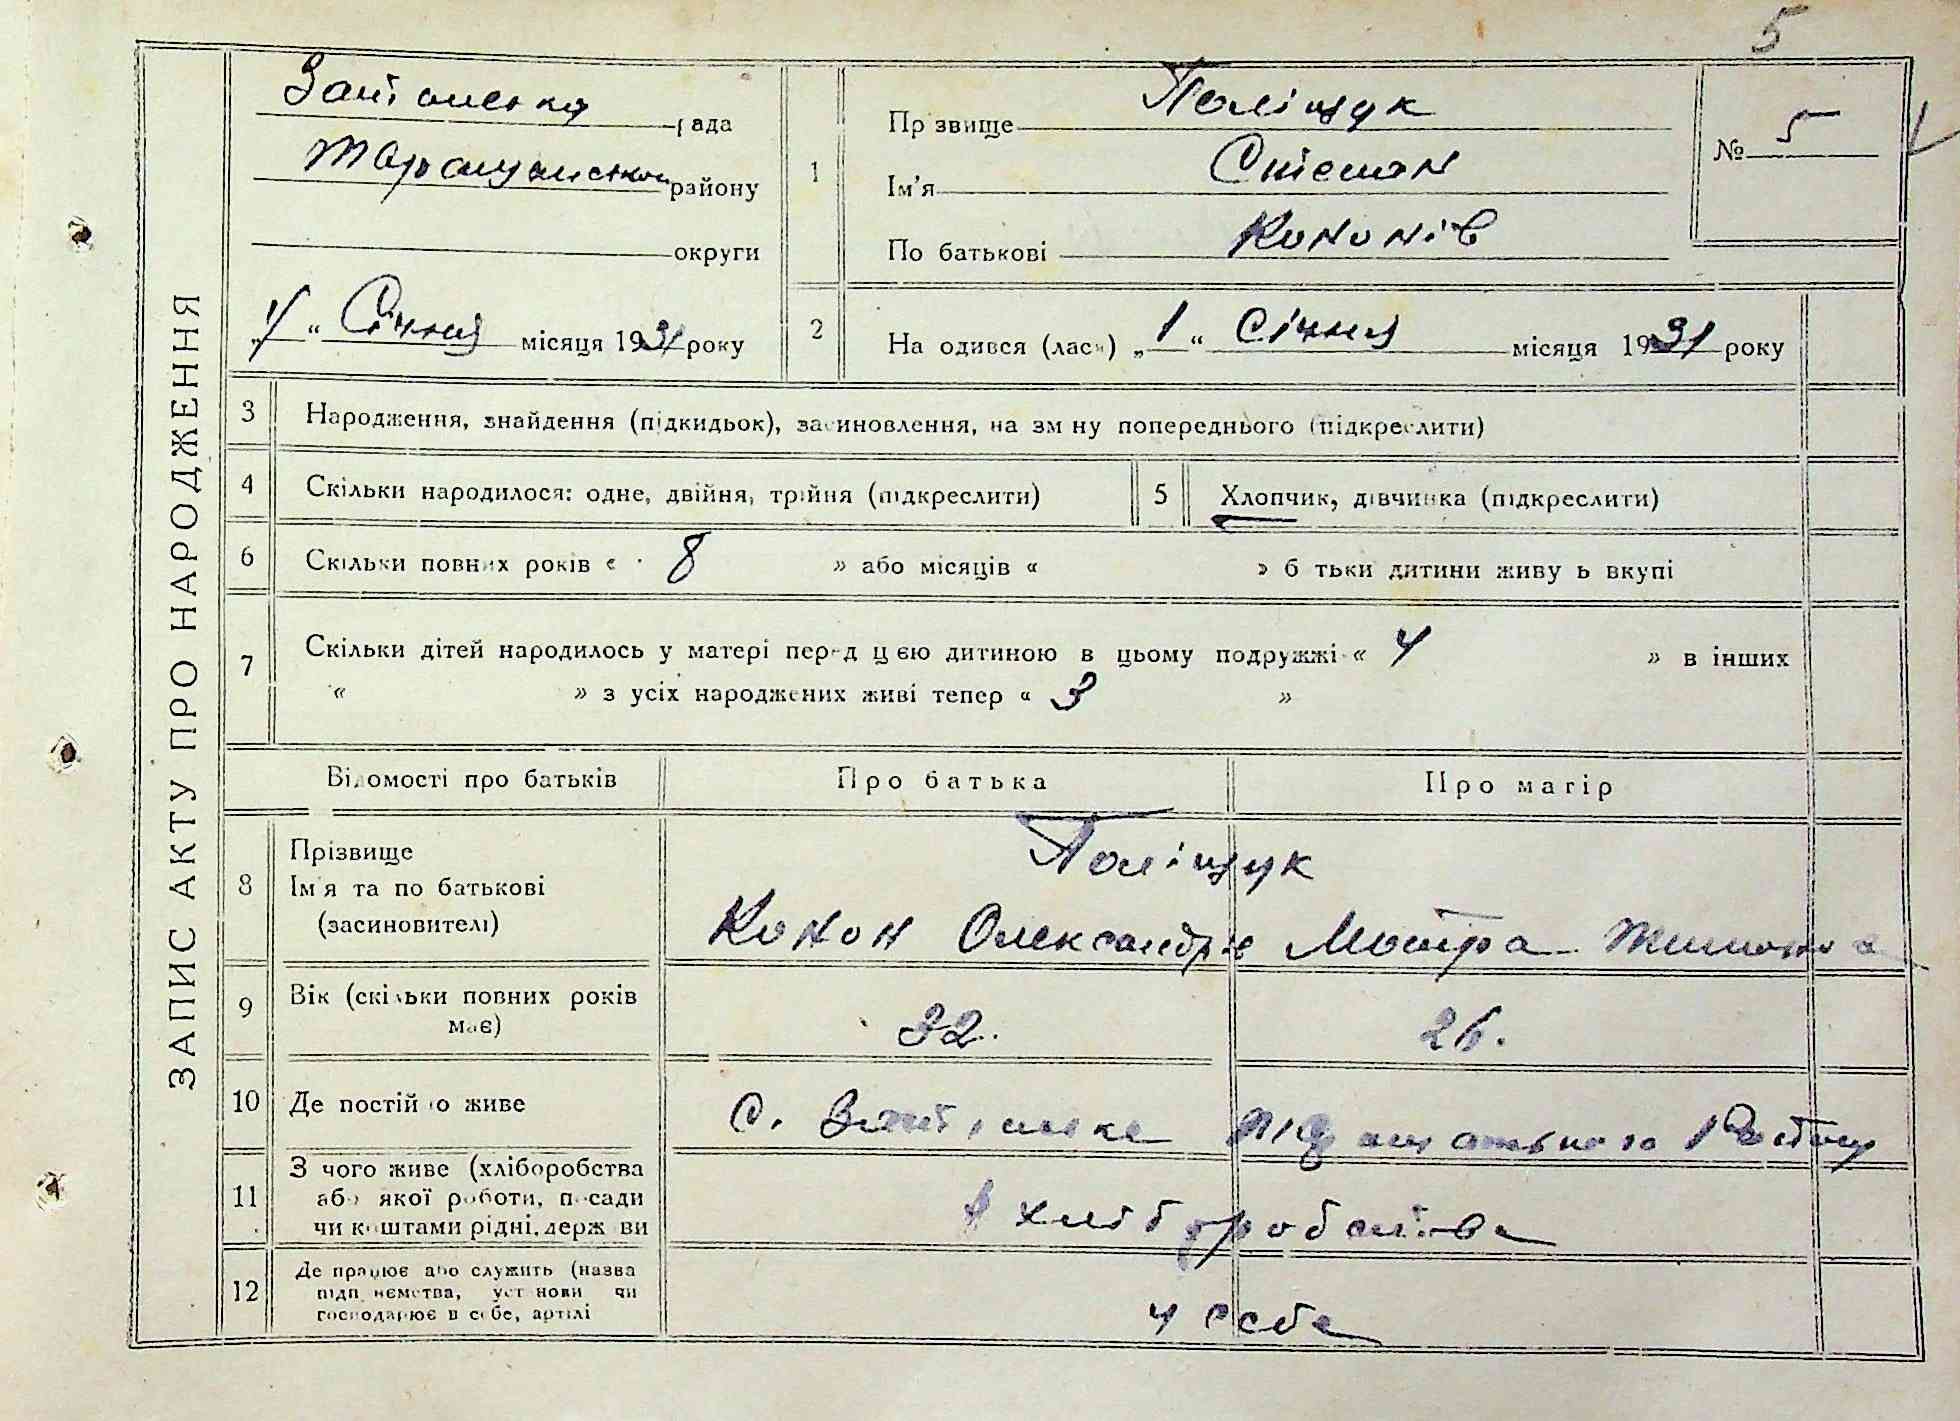 5
ЗАПИС АКТУ ПРО НАРОДЖЕННЯ
рада
району
округи
„4“ Січня місяця 1931 року
1
Прізвище Поліщук
Ім’я Степан
По батькові Кононів
№ 5
2
На одився (лась) „1“ Січня місяця 1931 року
3 Народження, знайдення (підкидьок), засиновлення, на зм ну попереднього (підкреслити)
4 Скільки народилося: одне, двійня, трійня (підкреслити)
5 Хлопчик, дівчинка (підкреслити)
6 Скільки повних років « 8 » або місяців « » б тьки дитини живу ь вкупі
7 Скільки дітей народилось у матері перед цією дитиною в цьому подружжі « 4 » в інших
« » з усіх народжених живі тепер « 3 »
Відомості про батьків Про батька Про матір
8 Прізвище
Ім’я та по батькові
(засиновителі)
Поліщук
Конон Олександрів Мотра
9 Вік (скільки повних років
має)
32. 26.
10 Де постій о живе
С.
11 З чого живе (хліборобства
або якої роботи, посади
чи коштами рідні, держ ви
з хліборобства
12 Де працює або служить (назва
підп иємства, уст нови чи
господарює в себе, артілі
у себе